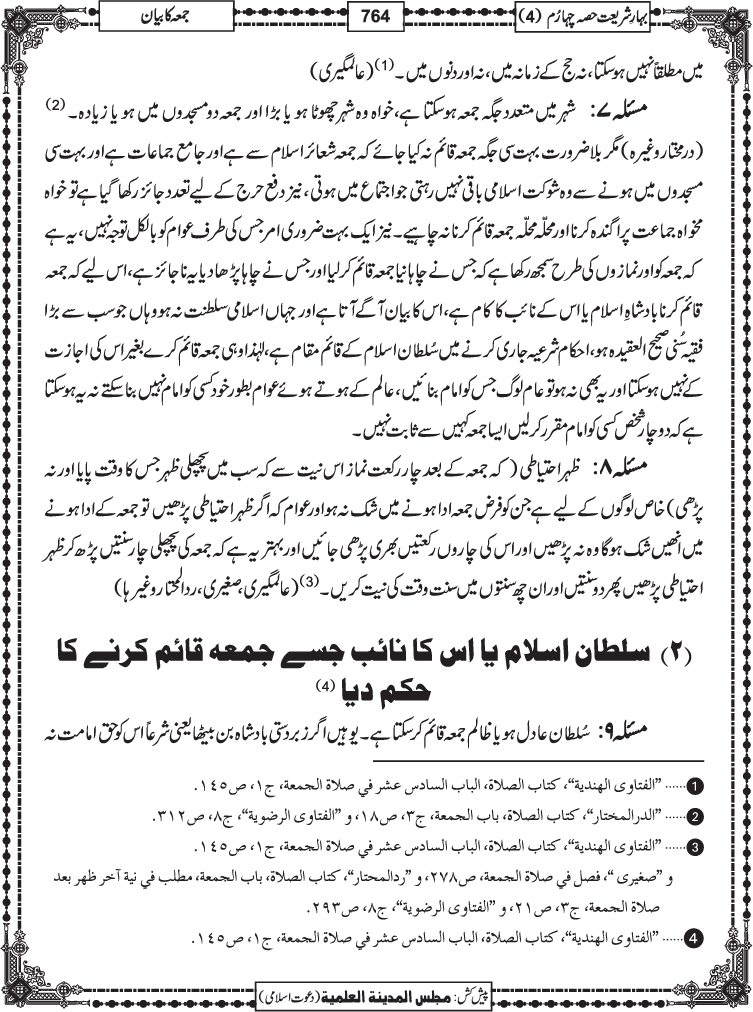 بہارِشریعت حصہ چہارُم (4)
764
جمعہ کا بیان
میں مطلقاً نہیں ہوسکتا، نہ حج کے زمانہ میں، نہ اور دنوں میں۔ (1) (عالمگیری)
مسئلہ ۷: شہر میں متعدد جگہ جمعہ ہوسکتا ہے، خواہ وہ شہر چھوٹا ہو یا بڑا اور جمعہ دو مسجدوں میں ہو یا زیادہ۔ (2)
(درمختار وغیرہ) مگر بلا ضرورت بہت سی جگہ جمعہ قائم نہ کیا جائے کہ جمعہ شعائر اسلام سے ہے اور جامع جماعات ہے اور بہت سی
مسجدوں میں ہونے سے وہ شوکت اسلامی باقی نہیں رہتی جو اجتماع میں ہوتی، نیز دفع حرج کے لیے تعدد جائز رکھا گیا ہے تو خواہ
مخواہ جماعت پراگندہ کرنا اور محلّہ محلّہ جمعہ قائم کرنا نہ چاہیے۔ نیز ایک بہت ضروری امر جس کی طرف عوام کو بالکل توجہ نہیں، یہ ہے
کہ جمعہ کو اور نمازوں کی طرح سمجھ رکھا ہے کہ جس نے چاہا نیا جمعہ قائم کرلیا اور جس نے چاہا پڑھا دیا یہ ناجائز ہے، اس لیے کہ جمعہ
قائم کرنا بادشاہِ اسلام یا اس کے نائب کا کام ہے، اس کا بیان آگے آتا ہے اور جہاں اسلامی سلطنت نہ ہو وہاں جو سب سے بڑا
فقیہ سُنی صحیح العقیدہ ہو، احکام شرعیہ جاری کرنے میں سُلطان اسلام کے قائم مقام ہے، لہٰذا وہی جمعہ قائم کرے بغیر اس کی اجازت
کے نہیں ہوسکتا اور یہ بھی نہ ہو تو عام لوگ جس کو امام بنائیں، عالم کے ہوتے ہوئے عوام بطور خود کسی کو امام نہیں بنا سکتے نہ یہ ہوسکتا
ہے کہ دو چار شخص کسی کو امام مقرر کرلیں ایسا جمعہ کہیں سے ثابت نہیں۔
مسئلہ ۸: ظہر احتیاطی (کہ جمعہ کے بعد چار رکعت نماز اس نیت سے کہ سب میں پچھلی ظہر جس کا وقت پایا اور نہ
پڑھی) خاص لوگوں کے لیے ہے جن کو فرض جمعہ ادا ہونے میں شک نہ ہو اور عوام کہ اگر ظہر احتیاطی پڑھیں تو جمعہ کے ادا ہونے
میں انھیں شک ہوگا وہ نہ پڑھیں اور اس کی چاروں رکعتیں بھری پڑھی جائیں اور بہتر یہ ہے کہ جمعہ کی پچھلی چار سنتیں پڑھ کر ظہر
احتیاطی پڑھیں پھر دو سنتیں اور ان چھ سنتوں میں سنت وقت کی نیت کریں۔ (3) (عالمگیری، صغیری، ردالمحتار وغیرہا)
(۲) سلطان اسلام یا اس کا نائب جسے جمعہ قائم کرنے کا
حکم دیا (4)
مسئلہ ۹: سُلطان عادل ہو یا ظالم جمعہ قائم کرسکتا ہے۔ یوہیں اگر زبردستی بادشاہ بن بیٹھا یعنی شرعاً اس کو حق امامت نہ
1 ...... ”الفتاوی الھندیة“، کتاب الصلاة، الباب السادس عشر في صلاة الجمعة، ج١، ص١٤٥.
2 ...... ”الدرالمختار“، کتاب الصلاة، باب الجمعة، ج٣، ص١٨، و ”الفتاوی الرضویة“، ج٨، ص٣١٢.
3 ...... ”الفتاوی الھندیة“، کتاب الصلاة، الباب السادس عشر في صلاة الجمعة، ج١، ص١٤٥.
و ”صغیری“، فصل في صلاة الجمعة، ص٢٧٨، و ”ردالمحتار“، کتاب الصلاة، باب الجمعة، مطلب في نیة آخر ظھر بعد
صلاة الجمعة، ج٣، ص٢١، و ”الفتاوی الرضویة“، ج٨، ص٢٩٣.
4 ...... ”الفتاوی الھندیة“، کتاب الصلاة، الباب السادس عشر في صلاة الجمعة، ج١، ص١٤٥.
پیش کش: مجلس المدینة العلمیة (دعوتِ اسلامی)